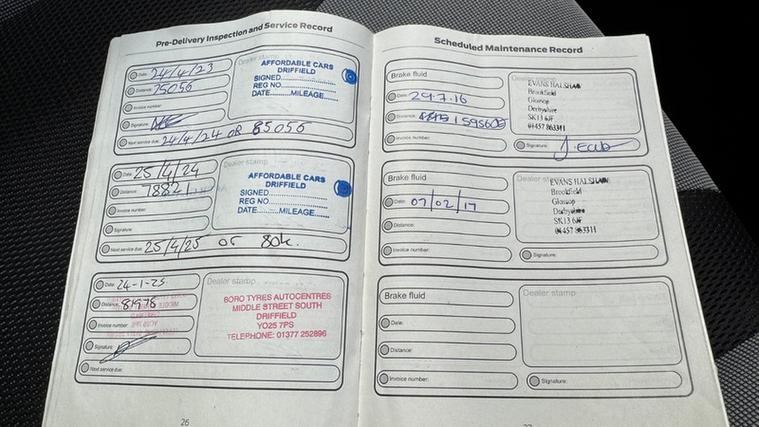 Pre-Delivery Inspection and Service Record
Date: 24/4/23
Distance: 75056
Invoice number:
Signature:
Next service due: 24/4/24 OR 85056
Dealer stamp
AFFORDABLE CARS
DRIFFIELD
SIGNED
REG NO
DATE MILEAGE
Date: 25/4/24
Distance: 78821
Invoice number:
Signature:
Next service due: 25/4/25 or 80k.
Dealer stamp
AFFORDABLE CARS
DRIFFIELD
SIGNED
REG NO
DATE MILEAGE
Date: 24-1-25
Distance: 81978
Invoice number:
Signature:
Next service due:
Dealer stamp
BORO TYRES AUTOCENTRES
MIDDLE STREET SOUTH
DRIFFIELD
YO25 7PS
TELEPHONE: 01377 252896
26
Scheduled Maintenance Record
Brake fluid
Date: 29.7.16
Distance:
Invoice number:
EVANS HALSHAW
Brookfield
Glossop
Derbyshire
SK13 6JF
01457 863311
Signature:
Brake fluid
Date: 07/02/17
Distance:
Invoice number:
Dealer
EVANS HALSHAW
Brookfield
Glossop
Derbyshire
SK13 6JF
01457 863311
Signature:
Brake fluid
Date:
Distance:
Invoice number:
Dealer stamp
Signature: